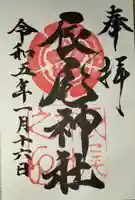 奉拜
辰尾神社
令和五年一月十六日